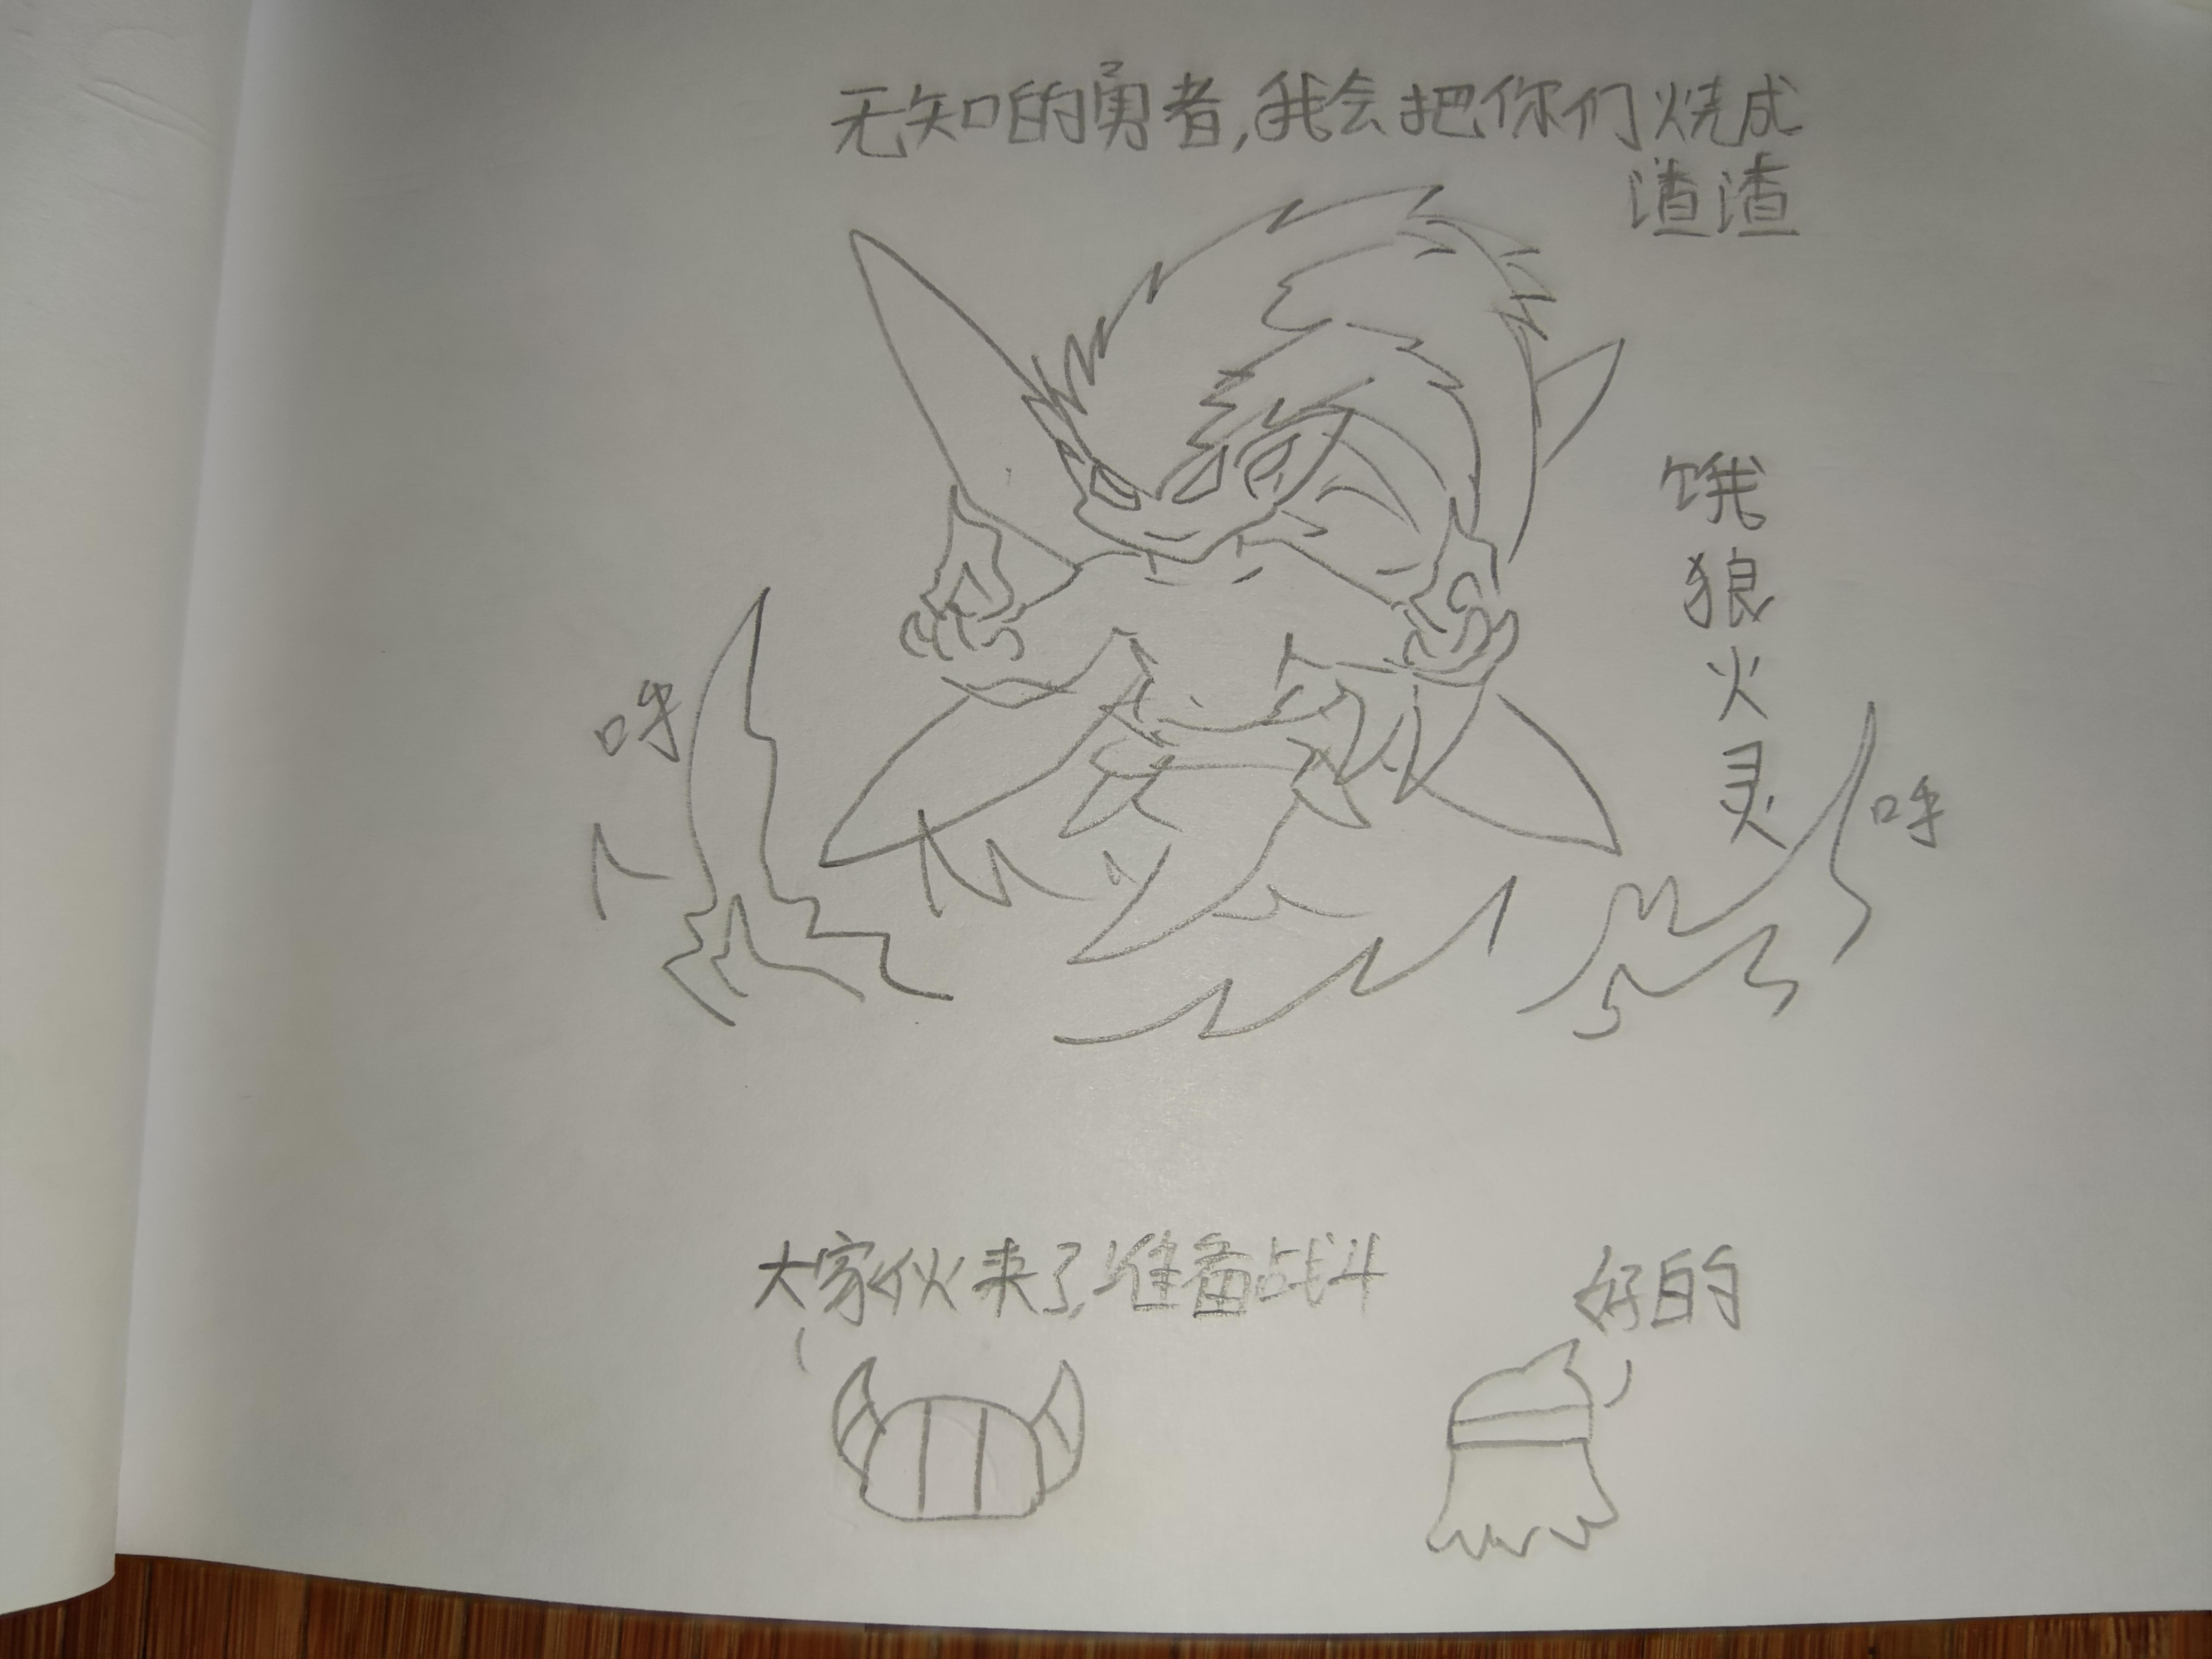 无知的勇者,我会把你们烧成
渣渣
饿狼火灵
呼
呼
大家伙来了,准备战斗
好的